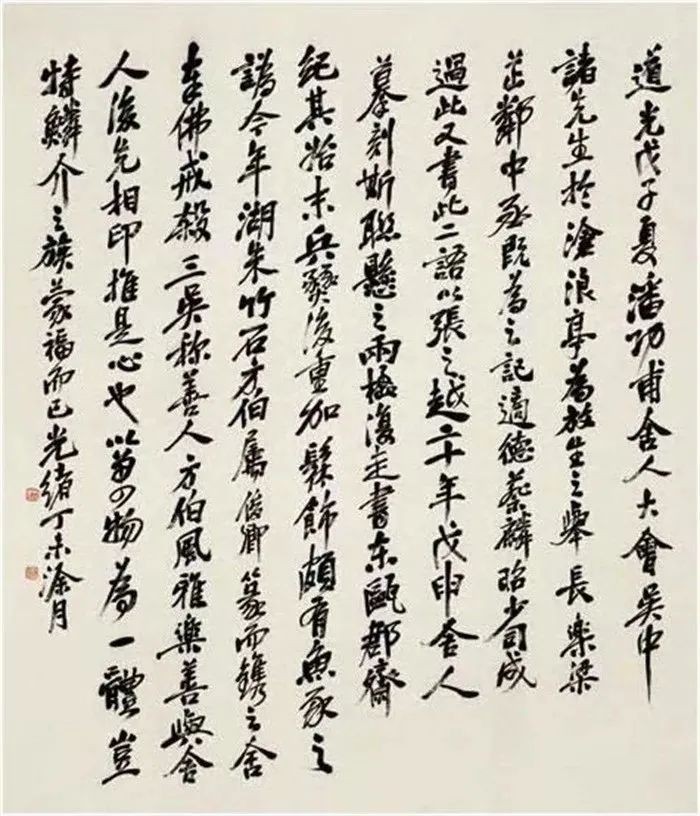 道光戊子夏潘功甫舍人大會吳中
諸先生於滄浪亭為放生之舉長樂梁
茝鄰中丞既為之記適德蔡麟昭少司成
過此又書此二語以張之越二十年戊申舍人
摹刻斯聯懸之兩楹復走書東甌郡齋
紀其始末兵燹後重加髹飾頗有魚豕之
譌今年湖朱竹石方伯屬俊卿篆而鐫之舍
奉佛戒殺三吳称善人方伯風雅樂善與舍
人後先相印推是心也以萬物為一體豈
特鱗介之族蒙福而已光緒丁未涂月